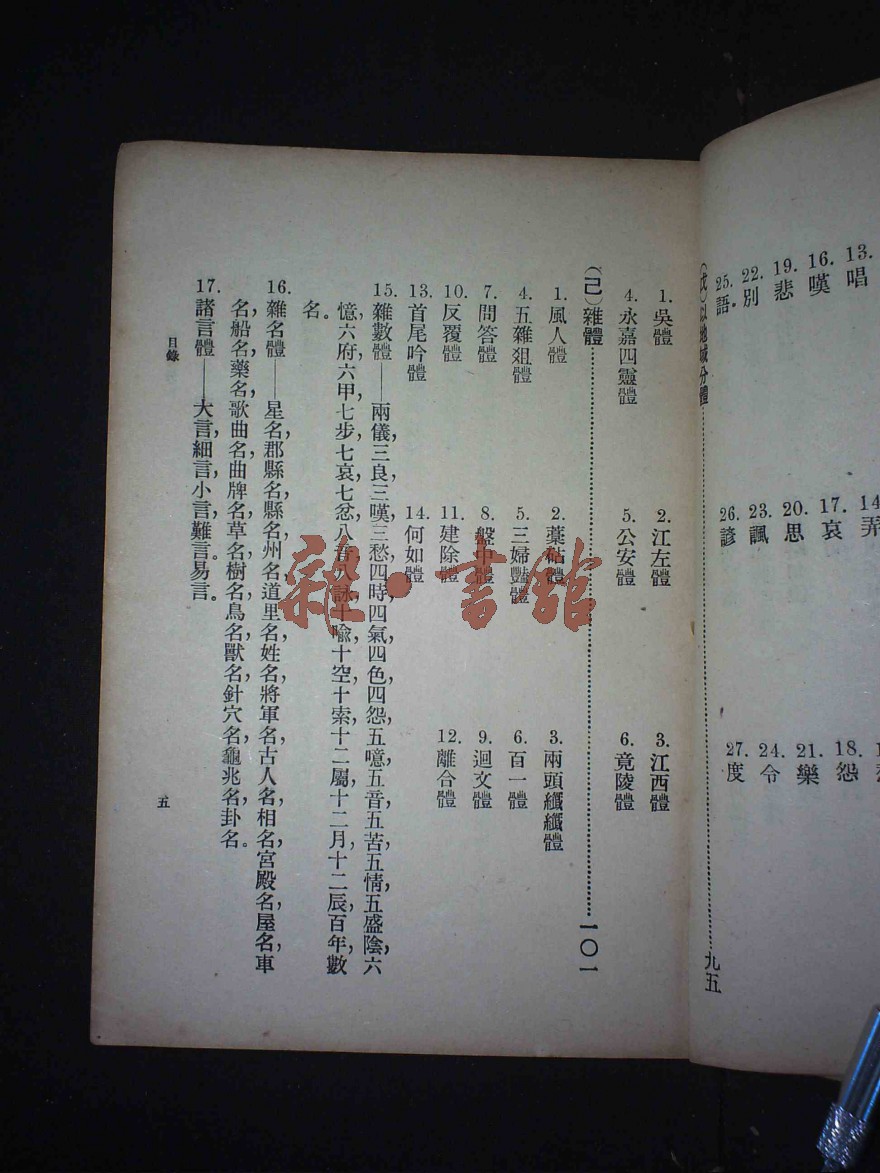 13. 唱 14. 弄
16. 嘆 17. 哀 18. 怨
19. 悲 20. 思 21. 樂
22. 別 23. 諷 24. 令
25. 語。 26. 諺 27. 度
(戊)以地域分體……九五
1. 吳體 2. 江左體 3. 江西體
4. 永嘉四靈體 5. 公安體 6. 竟陵體
(己)雜體……一〇一
1. 風人體 2. 藁砧體 3. 兩頭纖纖體
4. 五雜爼體 5. 三婦豔體 6. 百一體
7. 問答體 8. 盤中體 9. 迴文體
10. 反覆體 11. 建除體 12. 離合體
13. 首尾吟體 14. 何如體
15. 雜數體——兩儀,三良,三嘆,三愁,四時,四氣,四色,四怨,五噫,五音,五苦,五情,五盛陰,六
憶,六府,六甲,七步,七哀,七忿,八音,八詠,十喻,十空,十索,十二屬,十二月,十二辰,百年,數
名。
16. 雜名體——星名,郡縣名,縣名,州名,道里名,姓名,將軍名,古人名,相名,宮殿名,屋名,車
名,船名,藥名,歌曲名,曲牌名,草名,樹名,鳥名,獸名,針穴名,龜兆名,卦名。
17. 諸言體——大言,細言,小言,難言,易言。
目錄
五
雜·書館